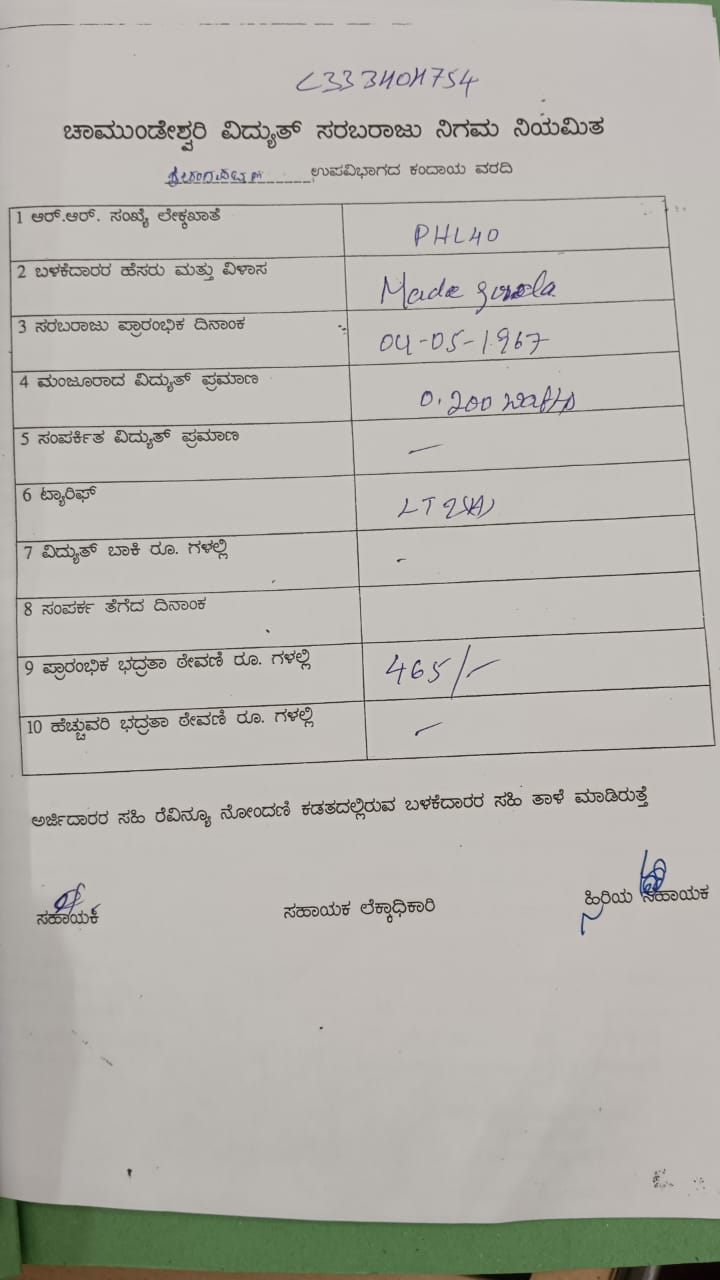 ಚಾಮುಂಡೇಶ್ವರಿ ವಿದ್ಯುತ್ ಸರಬರಾಜು ನಿಗಮ ನಿಯಮಿತ
ಉಪವಿಭಾಗದ ಕಂದಾಯ ವರದಿ
1 ಆರ್.ಆರ್. ಸಂಖ್ಯೆ ಲೇಕ್ಕಖಾತೆ PHL40
2 ಬಳಕೆದಾರರ ಹೆಸರು ಮತ್ತು ವಿಳಾಸ Made
3 ಸರಬರಾಜು ಪ್ರಾರಂಭಿಕ ದಿನಾಂಕ 04-05-1967
4 ಮಂಜೂರಾದ ವಿದ್ಯುತ್ ಪ್ರಮಾಣ 0.200 watts
5 ಸಂಪರ್ಕಿತ ವಿದ್ಯುತ್ ಪ್ರಮಾಣ —
6 ಟ್ಯಾರಿಫ್ LT
7 ವಿದ್ಯುತ್ ಬಾಕಿ ರೂ. ಗಳಲ್ಲಿ -
8 ಸಂಪರ್ಕ ತೆಗೆದ ದಿನಾಂಕ
9 ಪ್ರಾರಂಭಿಕ ಭದ್ರತಾ ಠೇವಣಿ ರೂ. ಗಳಲ್ಲಿ 465/-
10 ಹೆಚ್ಚುವರಿ ಭದ್ರತಾ ಠೇವಣಿ ರೂ. ಗಳಲ್ಲಿ —
ಅರ್ಜಿದಾರರ ಸಹಿ ರೆವಿನ್ಯೂ ನೋಂದಣಿ ಕಡತದಲ್ಲಿರುವ ಬಳಕೆದಾರರ ಸಹಿ ತಾಳೆ ಮಾಡಿರುತ್ತೆ
ಸಹಾಯಕ ಸಹಾಯಕ ಲೆಕ್ಕಾಧಿಕಾರಿ ಹಿರಿಯ ಸಹಾಯಕ